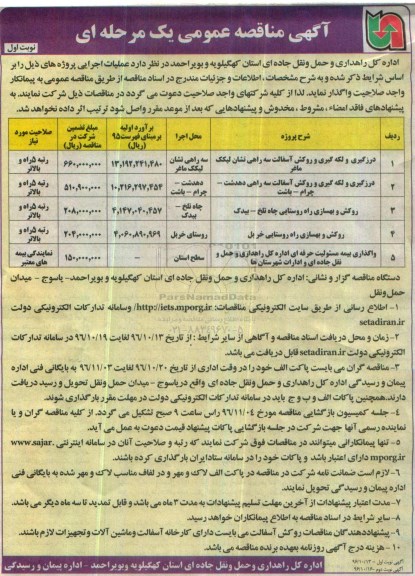 آگهی مناقصه عمومی یک مرحله ای
نوبت اول
اداره کل راهداری و حمل ونقل جاده ای استان کهگیلویه و بویراحمد در نظر دارد عملیات اجرایی پروژه های ذیل را بر
اساس شرایط ذکر شده و به شرح مشخصات، اطلاعات و جزئیات مندرج در اسناد مناقصه از طریق مناقصه عمومی به پیمانکار
واجد صلاحیت واگذار نماید. لذا از کلیه شرکتهای واجد صلاحیت دعوت می گردد در مناقصات ذیل شرکت نمایند. به
پیشنهادهای فاقد امضاء، مشروط، مخدوش و پیشنهادهایی که بعد از موعد مقرر واصل شود ترتیب اثر داده نخواهد شد.
ردیف شرح پروژه محل اجرا برآورد اولیه برمبنای فهرست ۹۵ (ریال) مبلغ تضمین شرکت در مناقصه (ریال) صلاحیت مورد نیاز
۱ درزگیری و لکه گیری و روکش آسفالت سه راهی نشان لیکک ماغر سه راهی نشان لیکک ماغر ۱۳,۱۹۲,۲۴۱,۴۸۰ ۶۶۰,۰۰۰,۰۰۰ رتبه ۵راه و بالاتر
۲ درزگیری و لکه گیری و روکش آسفالت سه راهی دهدشت – چرام – باشت دهدشت – چرام – باشت ۱۰,۲۱۶,۲۹۷,۴۵۴ ۵۱۰,۹۰۰,۰۰۰ رتبه ۵راه و بالاتر
۳ روکش و بهسازی راه روستایی چاه تلخ – بیدک چاه تلخ – بیدک ۴,۱۴۷,۰۴۰,۴۵۷ ۲۰۸,۰۰۰,۰۰۰ رتبه ۵راه و بالاتر
۴ روکش و بهسازی راه روستایی خربل روستای خربل ۴,۰۶۰,۸۹۰,۹۶۹ ۲۰۴,۰۰۰,۰۰۰ رتبه ۵راه و بالاتر
۵ واگذاری بیمه مسئولیت حرفه ای اداره کل راهداری و حمل و نقل جاده ای و ادارات شهرستان ها سطح استان – ۱۵۰,۰۰۰,۰۰۰ نمایندگی بیمه های معتبر
دستگاه مناقصه گزار و نشانی: اداره کل راهداری و حمل ونقل جاده ای استان کهگیلویه و بویراحمد- یاسوج - میدان
حمل ونقل
۱- اطلاع رسانی از طریق سایت الکترونیکی مناقصات: http://iets.mporg.ir/ وسامانه تدارکات الکترونیکی دولت
setadiran.ir
۲- زمان و محل دریافت اسناد مناقصه و آگاهی از سایر شرایط : از تاریخ ۹۶/۱۰/۱۳ لغایت ۹۶/۱۰/۱۹ در سامانه تدارکات
الکترونیکی دولت setadiran.ir قابل دریافت می باشد.
۳- مناقصه گران می بایست پاکت الف خود را در وقت اداری از تاریخ ۹۶/۱۰/۲۰ لغایت ۹۶/۱۱/۰۳ به بایگانی فنی اداره
پیمان و رسیدگی اداره کل راهداری و حمل ونقل جاده ای واقع در یاسوج - میدان حمل ونقل تحویل و رسید دریافت
دارند. همچنین پاکات الف و ب و ج باید در سامانه تدارکات الکترونیکی دولت در مهلت مقرر بارگذاری شوند.
۴- جلسه کمیسیون بازگشایی مناقصه مورخ ۹۶/۱۱/۰۴ راس ساعت ۹ صبح تشکیل می گردد. از کلیه مناقصه گران و یا
نماینده رسمی آنها جهت شرکت در جلسه بازگشایی پاکات پیشنهاد قیمت دعوت به عمل می آید.
۵- تنها پیمانکارانی میتوانند در مناقصات فوق شرکت نمایند که رتبه و صلاحیت آنان در سامانه اینترنتی www.sajar.
mporg.ir دارای اعتبار باشد و پاکات خود را در سامانه ستاد ایران بارگذاری کرده باشند.
۶- لازم است ضمانت نامه شرکت در مناقصه در پاکت الف لاک و مهر و در لفاف مناسب لاک و مهر شده به بایگانی فنی
اداره پیمان و رسیدگی تحویل نمایند.
۷- مدت اعتبار پیشنهادات از آخرین مهلت تسلیم پیشنهادات به مدت ۳ ماه می باشد و قابل تمدید تا سه ماه دیگر می باشد.
۸- سایر شرایط در اسناد مناقصه به اطلاع پیمانکاران خواهد رسید.
۹- پیشنهاددهندگان مناقصات روکش آسفالت می بایست دارای کارخانه آسفالت وماشین آلات وتجهیزات لازم باشند.
۱۰- هزینه درج آگهی روزنامه بعهده برنده مناقصه می باشد.
آگهی نوبت اول: ۹۶/۱۰/۱۳
آگهی نوبت دوم: ۹۶/۱۰/۱۶
اداره کل راهداری و حمل ونقل جاده ای استان کهگیلویه وبویراحمد - اداره پیمان و رسیدگی